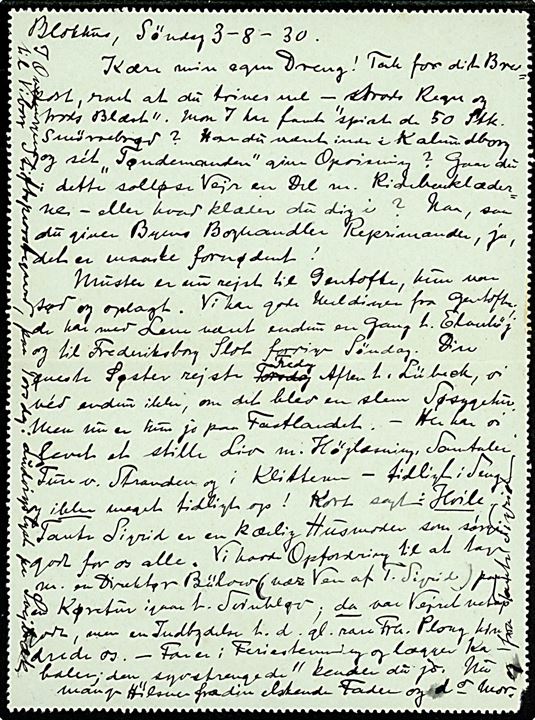 Blokhus, Søndag 3-8-30.
Kære min egen Dreng! Tak for dit Bre-
kort, rart at du trives vel – trods Regn og
trods Blæst". Mon I har faaet spist de 50 Stk.
Smørrebrød? Har du været inde i Kalundborg
og sét "Tøndemanden" give Opvisning? Gaar du
i dette solløse Vejr en Del m. Ridebenklæder-
ne – eller hvad klæder du dig i? Naa, saa
du giver Byens Boghandler Reprimander, ja,
det er maaske fornødent!
Muster er nu rejst til Gentofte, hun var
sød og oplagt. Vi har gode Meldinger fra Gentofte.
de har med Lene været endnu en Gang t.
og til Frederiksborg Slot forrige Søndag. Din
Søster rejste Freds Aften t. Lübeck, vi
véd endnu ikke, om det blev en slem Søsygetur.
Men nu er hun jo paa Fastlandet. – Her har vi
levet et stille Liv m. Højtlæsning, Samtaler,
Ture v. Stranden og i Klitterne – tidligt i Seng
ikke meget tidligt op! Kort sagt: Hvile,
Tante Sigrid er en kærlig Husmoder som sørger
godt for os alle. Vi havde Opfordring til at tage
m. en Direktør Bülow (nær Ven af T. Sigrid) paa
Køretur igaar t. Svinkløv, da var Vejret
godt, men en Indbydelse t. d. gl. rare Frk. Ploug hin-
drede os. – Far er i Feriestemning og lægger Ka-
baler, "den syvstrengede" kender du jo. Nu
mange Hilsner fra din elskende Fader og
Mor.
til Viborg
fra Tante Sigrid